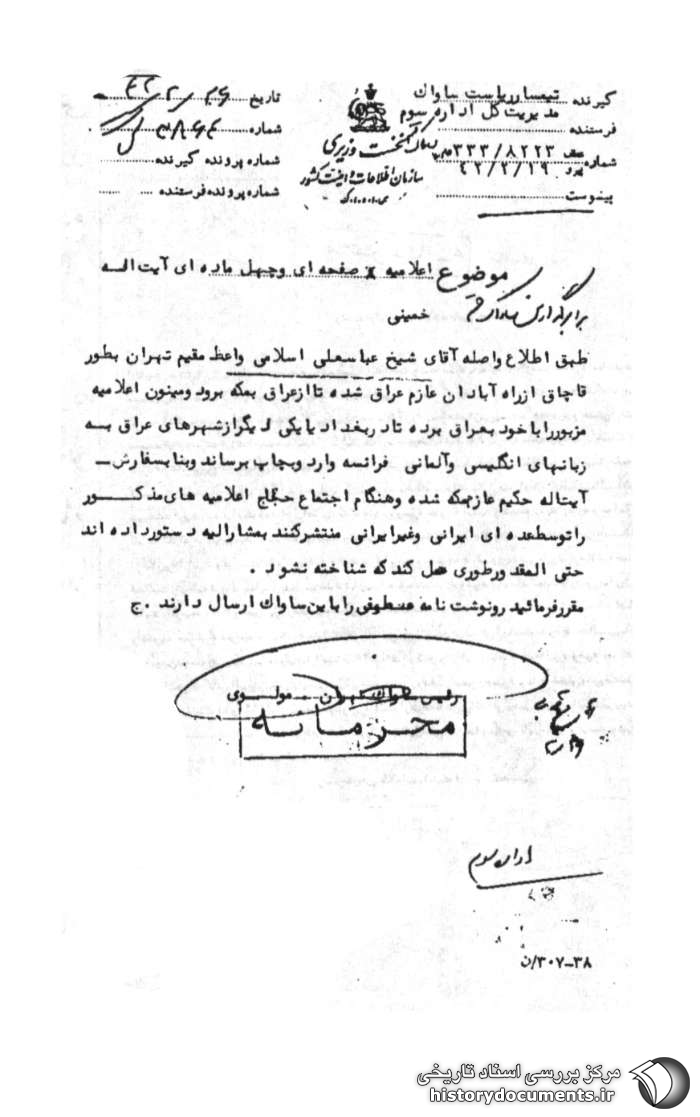 گیرنده تیمسار ریاست ساواک
مدیریت کل اداره سوم
فرستنده
شماره ۳۳۳/۸۲۲۳
۴۲/۲/۲۹
پیوست
نخست وزیری
سازمان اطلاعات و امنیت کشور
س.ا.و.ا.ک
تاریخ
شماره
شماره پرونده گیرنده
شماره پرونده فرستنده
موضوع اعلامیه صفحه ای وچهل ماده ای آیت اله
خمینی
طبق اطلاع واصله آقای شیخ عباسعلی اسلامی واعظ مقیم تهران بطور
قاچاق ازراه آبادان عازم عراق شده تاازعراق بمکه برود ومیتون اعلامیه
مزبوررا باخود بعراق برده تادربغداد یایکی دیگرازشهرهای عراق بسه
زبانهای انگلیسی وآلمانی فرانسه وارد وبچاپ برساند وبنابسفارش
آیتاله حکیم عازمکه شده وهنگام اجتماع حجاج اعلامیه های مذکور
راتوسط عده ای ایرانی وغیرایرانی منتشرکنند بمشارالیه دستورداده اند
حتی المقدورطوری عمل کند که شناخته نشود .
مقررفرمائید رونوشت نامه راباین ساواک ارسال دارند .ج
رئیس ساواک تهران – مولوی
محرمانه
اداره سوم
۳۰۷-۳۸/ن
مرکز بررسی اسناد تاریخی
historydocuments.ir